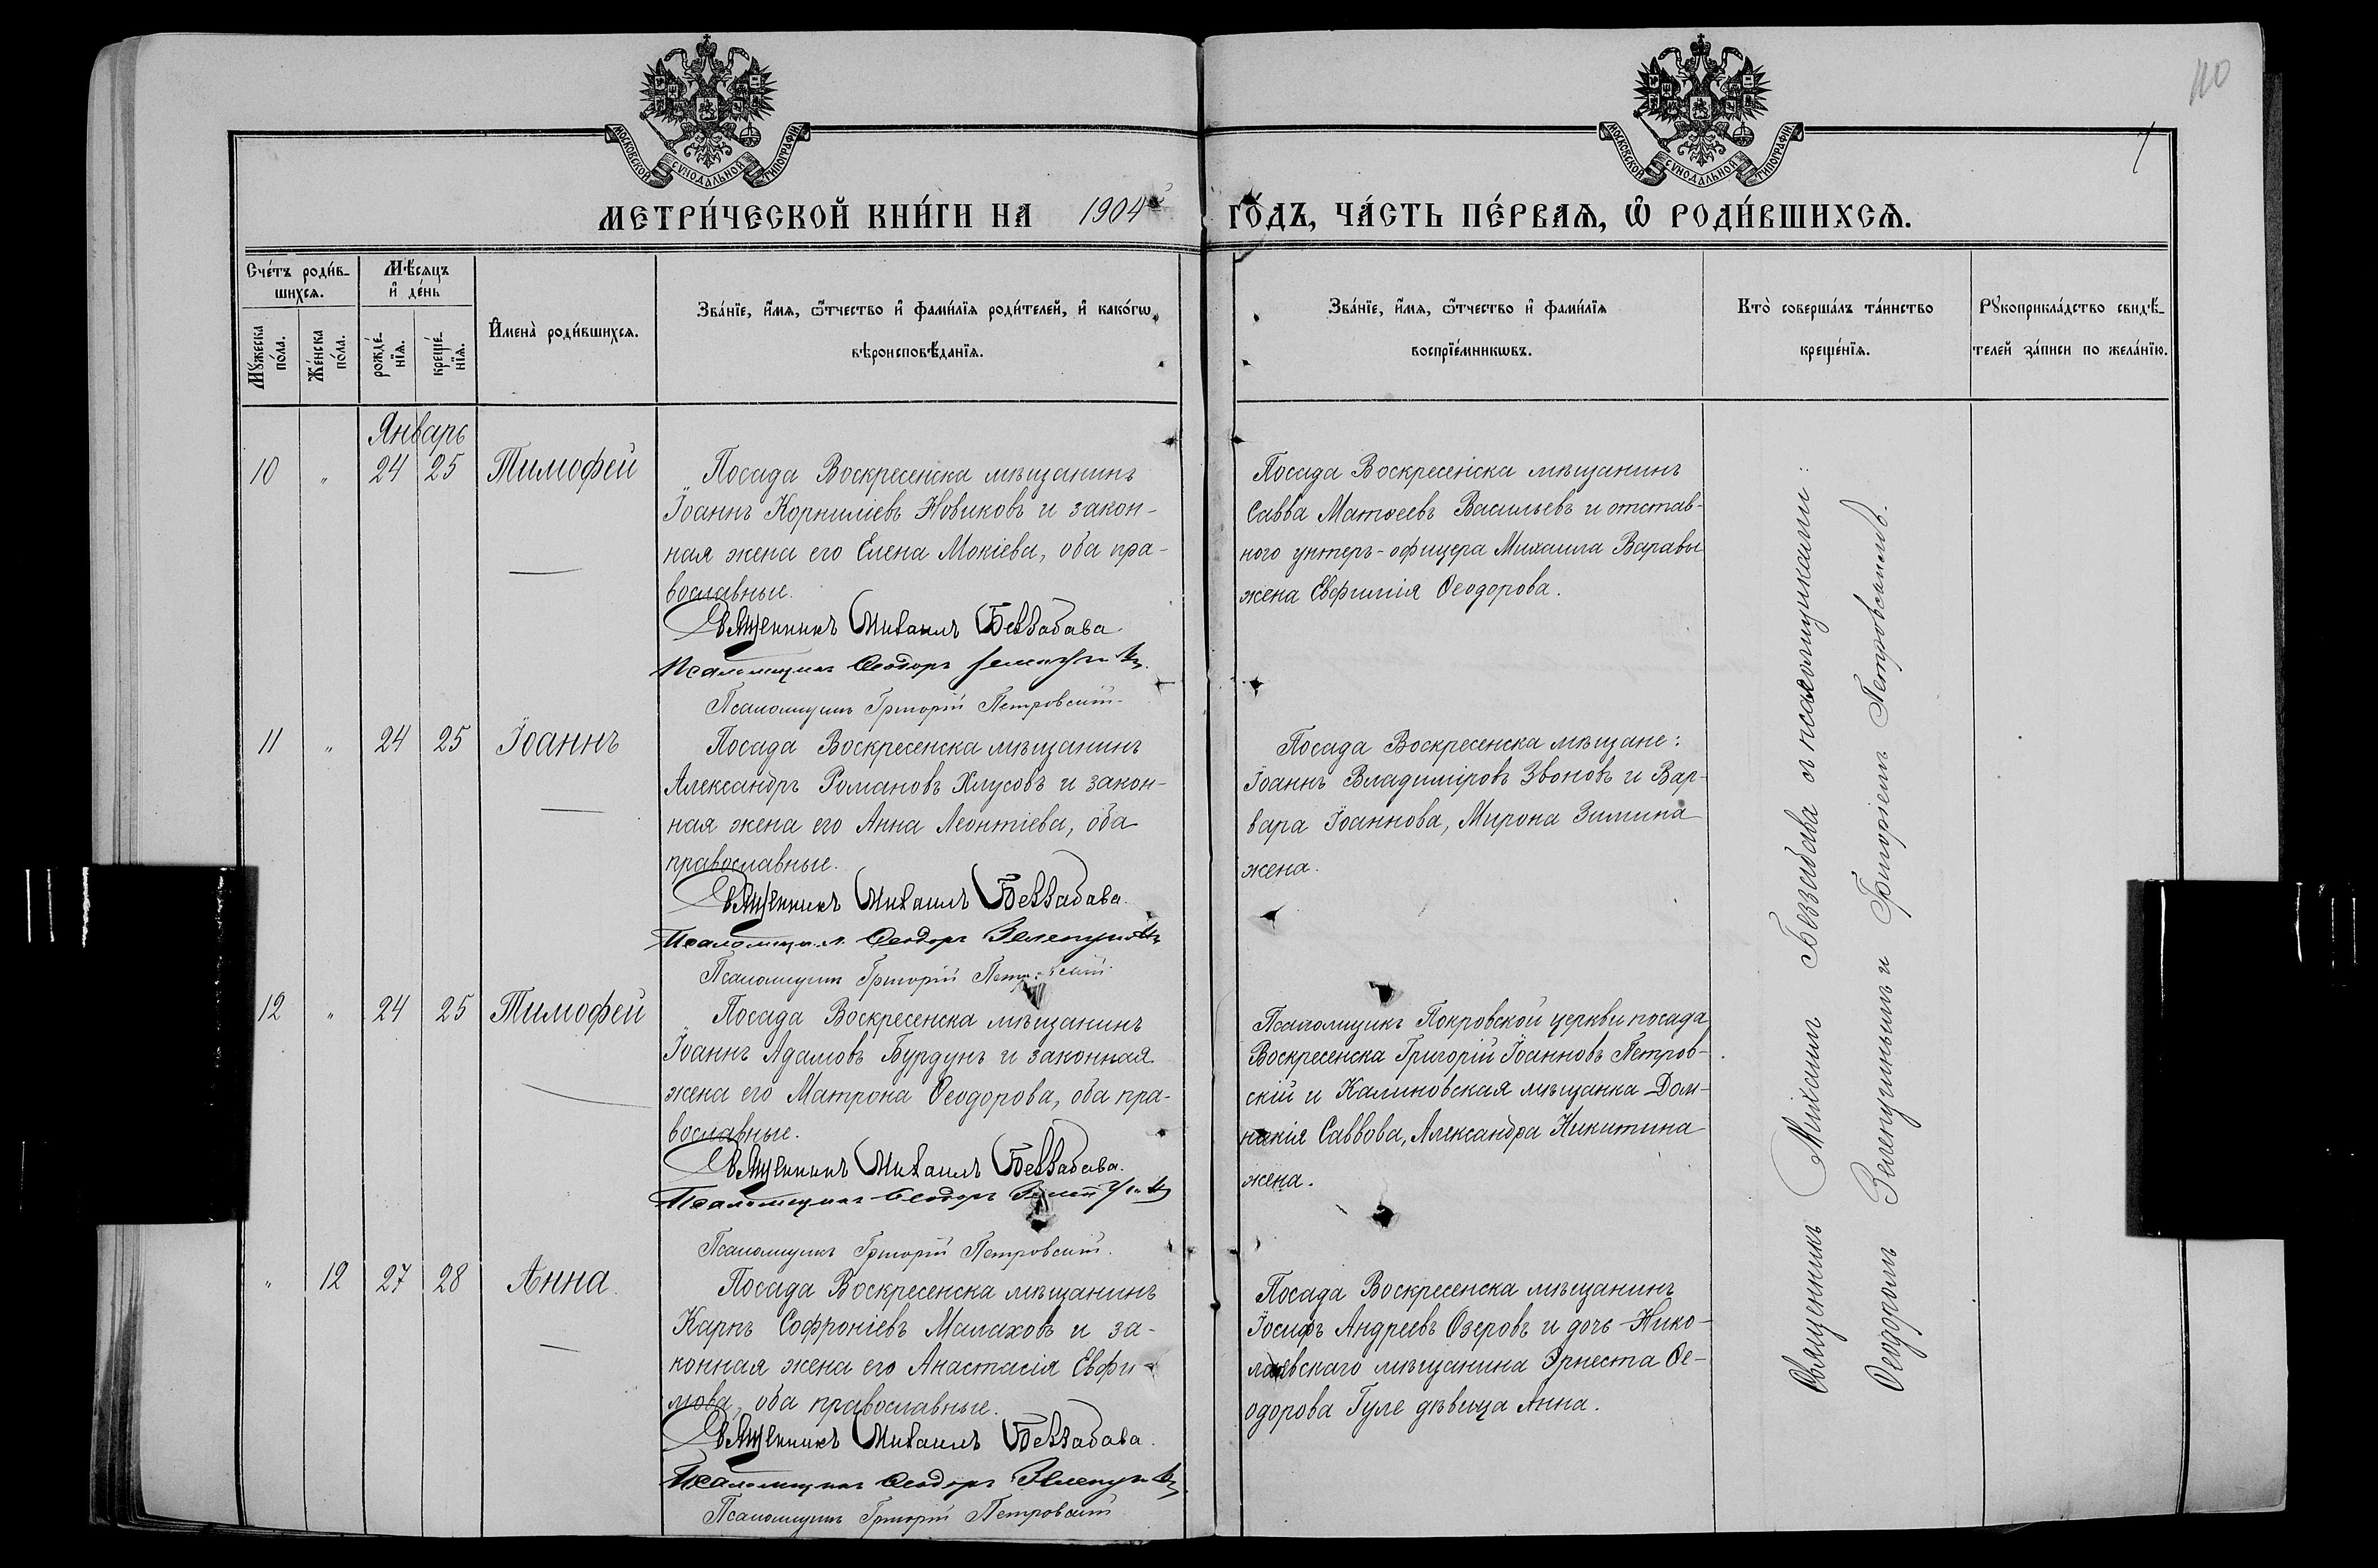 110
7
МОСКОВСКОЙ СѴНОДАЛЬНОЙ ТИПОГРАФІИ
МОСКОВСКОЙ СѴНОДАЛЬНОЙ ТИПОГРАФІИ
МЕТРИ́ЧЕСКОЙ КНИ́ГИ НА 1904й ГО́ДЪ, ЧА́СТЬ ПЕ́РВАѦ, Ѡ҆ РОДИ́ВШИХСѦ.
Сче́тъ роди́в-
шихсѧ.
Мꙋ́жеска
по́ла.
Же́нска
по́ла.
Мѣ́сѧцъ
и҆ де́нь
рожде́-
нїѧ.
креще́-
нїѧ.
И҆мена̀ роди́вшихсѧ.
Зва́нїе, и҆́мѧ, ѻ҆́тчество и҆ фами́лїѧ роди́телей, и҆ како́гѡ
вѣроисповѣ́данїѧ.
Зва́нїе, и҆́мѧ, ѻ҆́тчество и҆ фами́лїѧ
воспрїе́мникѡвъ.
Кто̀ соверша́лъ та́инство
креще́нїѧ.
Рꙋкоприкла́дство свидѣ́-
телей за́писи по жела́нїю.
Январь
10 " 24 25 Тимофей
Посада Воскресенска мѣщанинъ
Іоаннъ Корниліевъ Новиковъ и закон-
ная жена его Елена Мокіева, оба пра-
вославные.
Священникъ Михаилъ Беззабава
Псаломщикъ Ѳеодоръ
Псаломщикъ Григорій Петровскій
Посада Воскресенска мѣщанинъ
Савва Матѳеевъ Васильевъ и отстав-
ного унтеръ-офицера Михаила Варавы
жена Евфимія Ѳеодорова.
11 " 24 25 Іоаннъ
Посада Воскресенска мѣщанинъ
Александръ Романовъ Хлусовъ и закон-
ная жена его Анна Леонтіева, оба
православные.
Священникъ Михаилъ Беззабава.
Псаломщикъ Ѳеодоръ Зелепугинъ
Псаломщикъ Григорій Петровскій
Посада Воскресенска мѣщане:
Іоаннъ Владиміровъ Звоновъ и Вар-
вара Іоаннова, Мирона Зимина
жена.
12 " 24 25 Тимофей
Посада Воскресенска мѣщанинъ
Іоаннъ Адамовъ Бурдунъ и законная
жена его Матрона Ѳеодорова, оба пра-
вославные.
Священникъ Михаилъ Беззабава.
Псаломщикъ Ѳеодоръ
Псаломщикъ Григорій Петровскій.
Псаломщикъ Покровской церкви посада
Воскресенска Григорій Іоанновъ Петров-
скій и Калиновская мѣщанка Дом-
накія Саввова, Александра Никитина
жена.
" 12 27 28 Анна
Посада Воскресенска мѣщанинъ
Карпъ Софроніевъ Малаховъ и за-
конная жена его Анастасія Евфи-
мова, оба православные.
Священникъ Михаилъ Беззабава.
Псаломщикъ Ѳеодоръ Зелепугинъ
Псаломщикъ Григорій Петровскій
Посада Воскресенска мѣщанинъ
Іосифъ Андреевъ Озеровъ и дочь Нико-
лаевскаго мѣщанина Эрнеста Ѳе-
одорова Гуле дѣвица Анна.
Священникъ Михаилъ Беззабава съ псаломщиками:
Ѳеодоромъ Зелепугинымъ и Григоріемъ Петровскимъ.